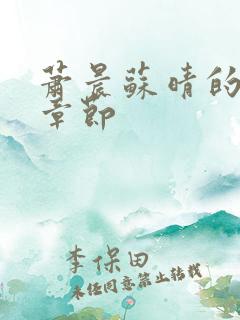 蕭晨蘇晴的
章節
李保田
未经同意禁止转载